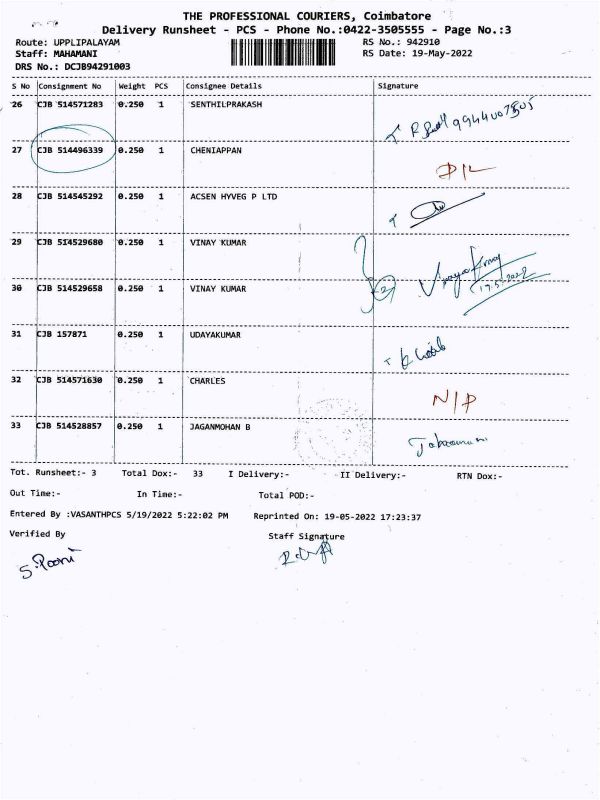 THE PROFESSIONAL COURIERS, Coimbatore
Delivery Runsheet - PCS - Phone No.:0422-3505555 - Page No.:3
Route: UPPLIPALAYAM RS No.: 942910
Staff: MAHAMANI RS Date: 19-May-2022
DRS No.: DCJB94291003
S No Consignment No Weight PCS Consignee Details Signature
26 CJB 514571283 0.250 1 SENTHILPRAKASH
27 CJB 514496339 0.250 1 CHENIAPPAN D/L
28 CJB 514545292 0.250 1 ACSEN HYVEG P LTD
29 CJB 514529680 0.250 1 VINAY KUMAR
30 CJB 514529658 0.250 1 VINAY KUMAR 2
31 CJB 157871 0.250 1 UDAYAKUMAR
32 CJB 514571630 0.250 1 CHARLES N/P
33 CJB 514528857 0.250 1 JAGANMOHAN B
Tot. Runsheet:- 3 Total Dox:- 33 I Delivery:- II Delivery:- RTN Dox:-
Out Time:- In Time:- Total POD:-
Entered By :VASANTHPCS 5/19/2022 5:22:02 PM Reprinted On: 19-05-2022 17:23:37
Verified By Staff Signature